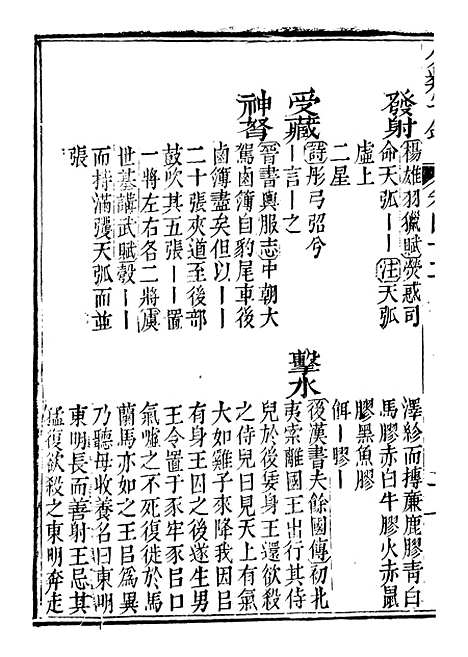 發射
揚雄羽獵賦熒惑司
命天弧丨丨注天弧
虛上
二星
受藏
詩彤弓弨兮
丨言丨之
神弩
晉書輿服志中朝大
駕鹵簿自豹尾車後
鹵簿盡矣但以丨丨
二十張夾道至後部
鼓吹其五張丨丨置
一將左右各二將虞
世基講武賦彀丨丨
而持滿彏天弧而並
張
澤紾而摶廉鹿膠青白
馬膠赤白牛膠火赤鼠
膠黑魚膠
餌丨膠丨
擊水
後漢書夫餘國傳初北
夷索離國王出行其侍
兒於後㚶身王還欲殺
之侍兒曰見天上有氣
大如雞子來降我因㠯
有身王囚之後遂生男
王令置于豕牢豕㠯口
氣噓之不死復徙於馬
蘭馬亦如之王㠯為異
乃聽母收養名曰東明
東明長而善射王忌其
猛復欲殺之東明奔走